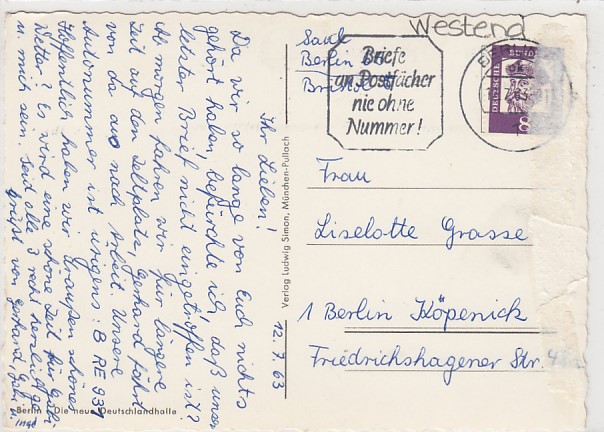 Westend
Berlin
Briefe
an Postfächer
nie ohne
Nummer!
DEUTSCHE BUNDESPOST
8
12. 7. 63
Ihr Lieben!
Da wir so lange von Euch nichts
gehört haben, befürchte ich, daß unser
letzter Brief nicht eingetroffen ist?
Ab morgen fahren wir für längere
Zeit auf den Zeltplatz, Gerhard fährt
von da aus nach Arbeit. Unsere
Autonummer ist übrigens: B RE 931
Hoffentlich haben wir draußen schönes
Wetter? Es wird eine schöne Zeit für Gabi
u. mich sein. Seid alle 3 recht herzlich ge-
grüßt von Gerhard, Gabi u.
Inge
Verlag Ludwig Simon, München-Pullach
Frau
Liselotte Grasse
1 Berlin Köpenick
Friedrichshagener Str.
Berlin Die neue Deutschlandhalle